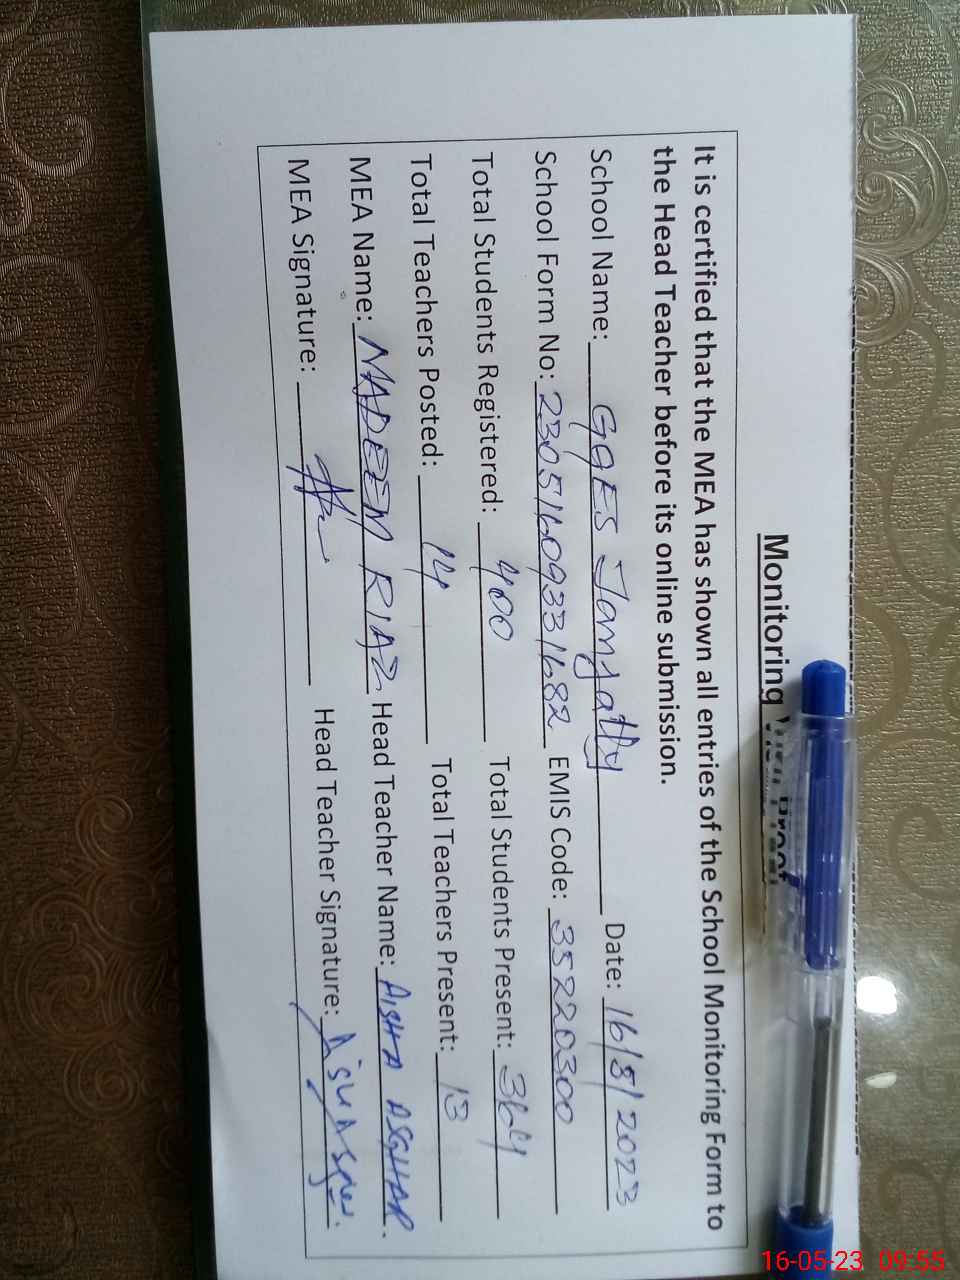 Monitoring Visit Proof
It is certified that the MEA has shown all entries of the School Monitoring Form to
the Head Teacher before its online submission.
School Name: GGES Jangatly Date: 16/5/2023
School Form No: 23051609331682 EMIS Code: 35220300
Total Students Registered: 400 Total Students Present: 364
Total Teachers Posted: 14 Total Teachers Present: 13
MEA Name: NADEEM RIAZ Head Teacher Name: AISHA ASGHAR.
MEA Signature: Head Teacher Signature:
16-05-23 09:55